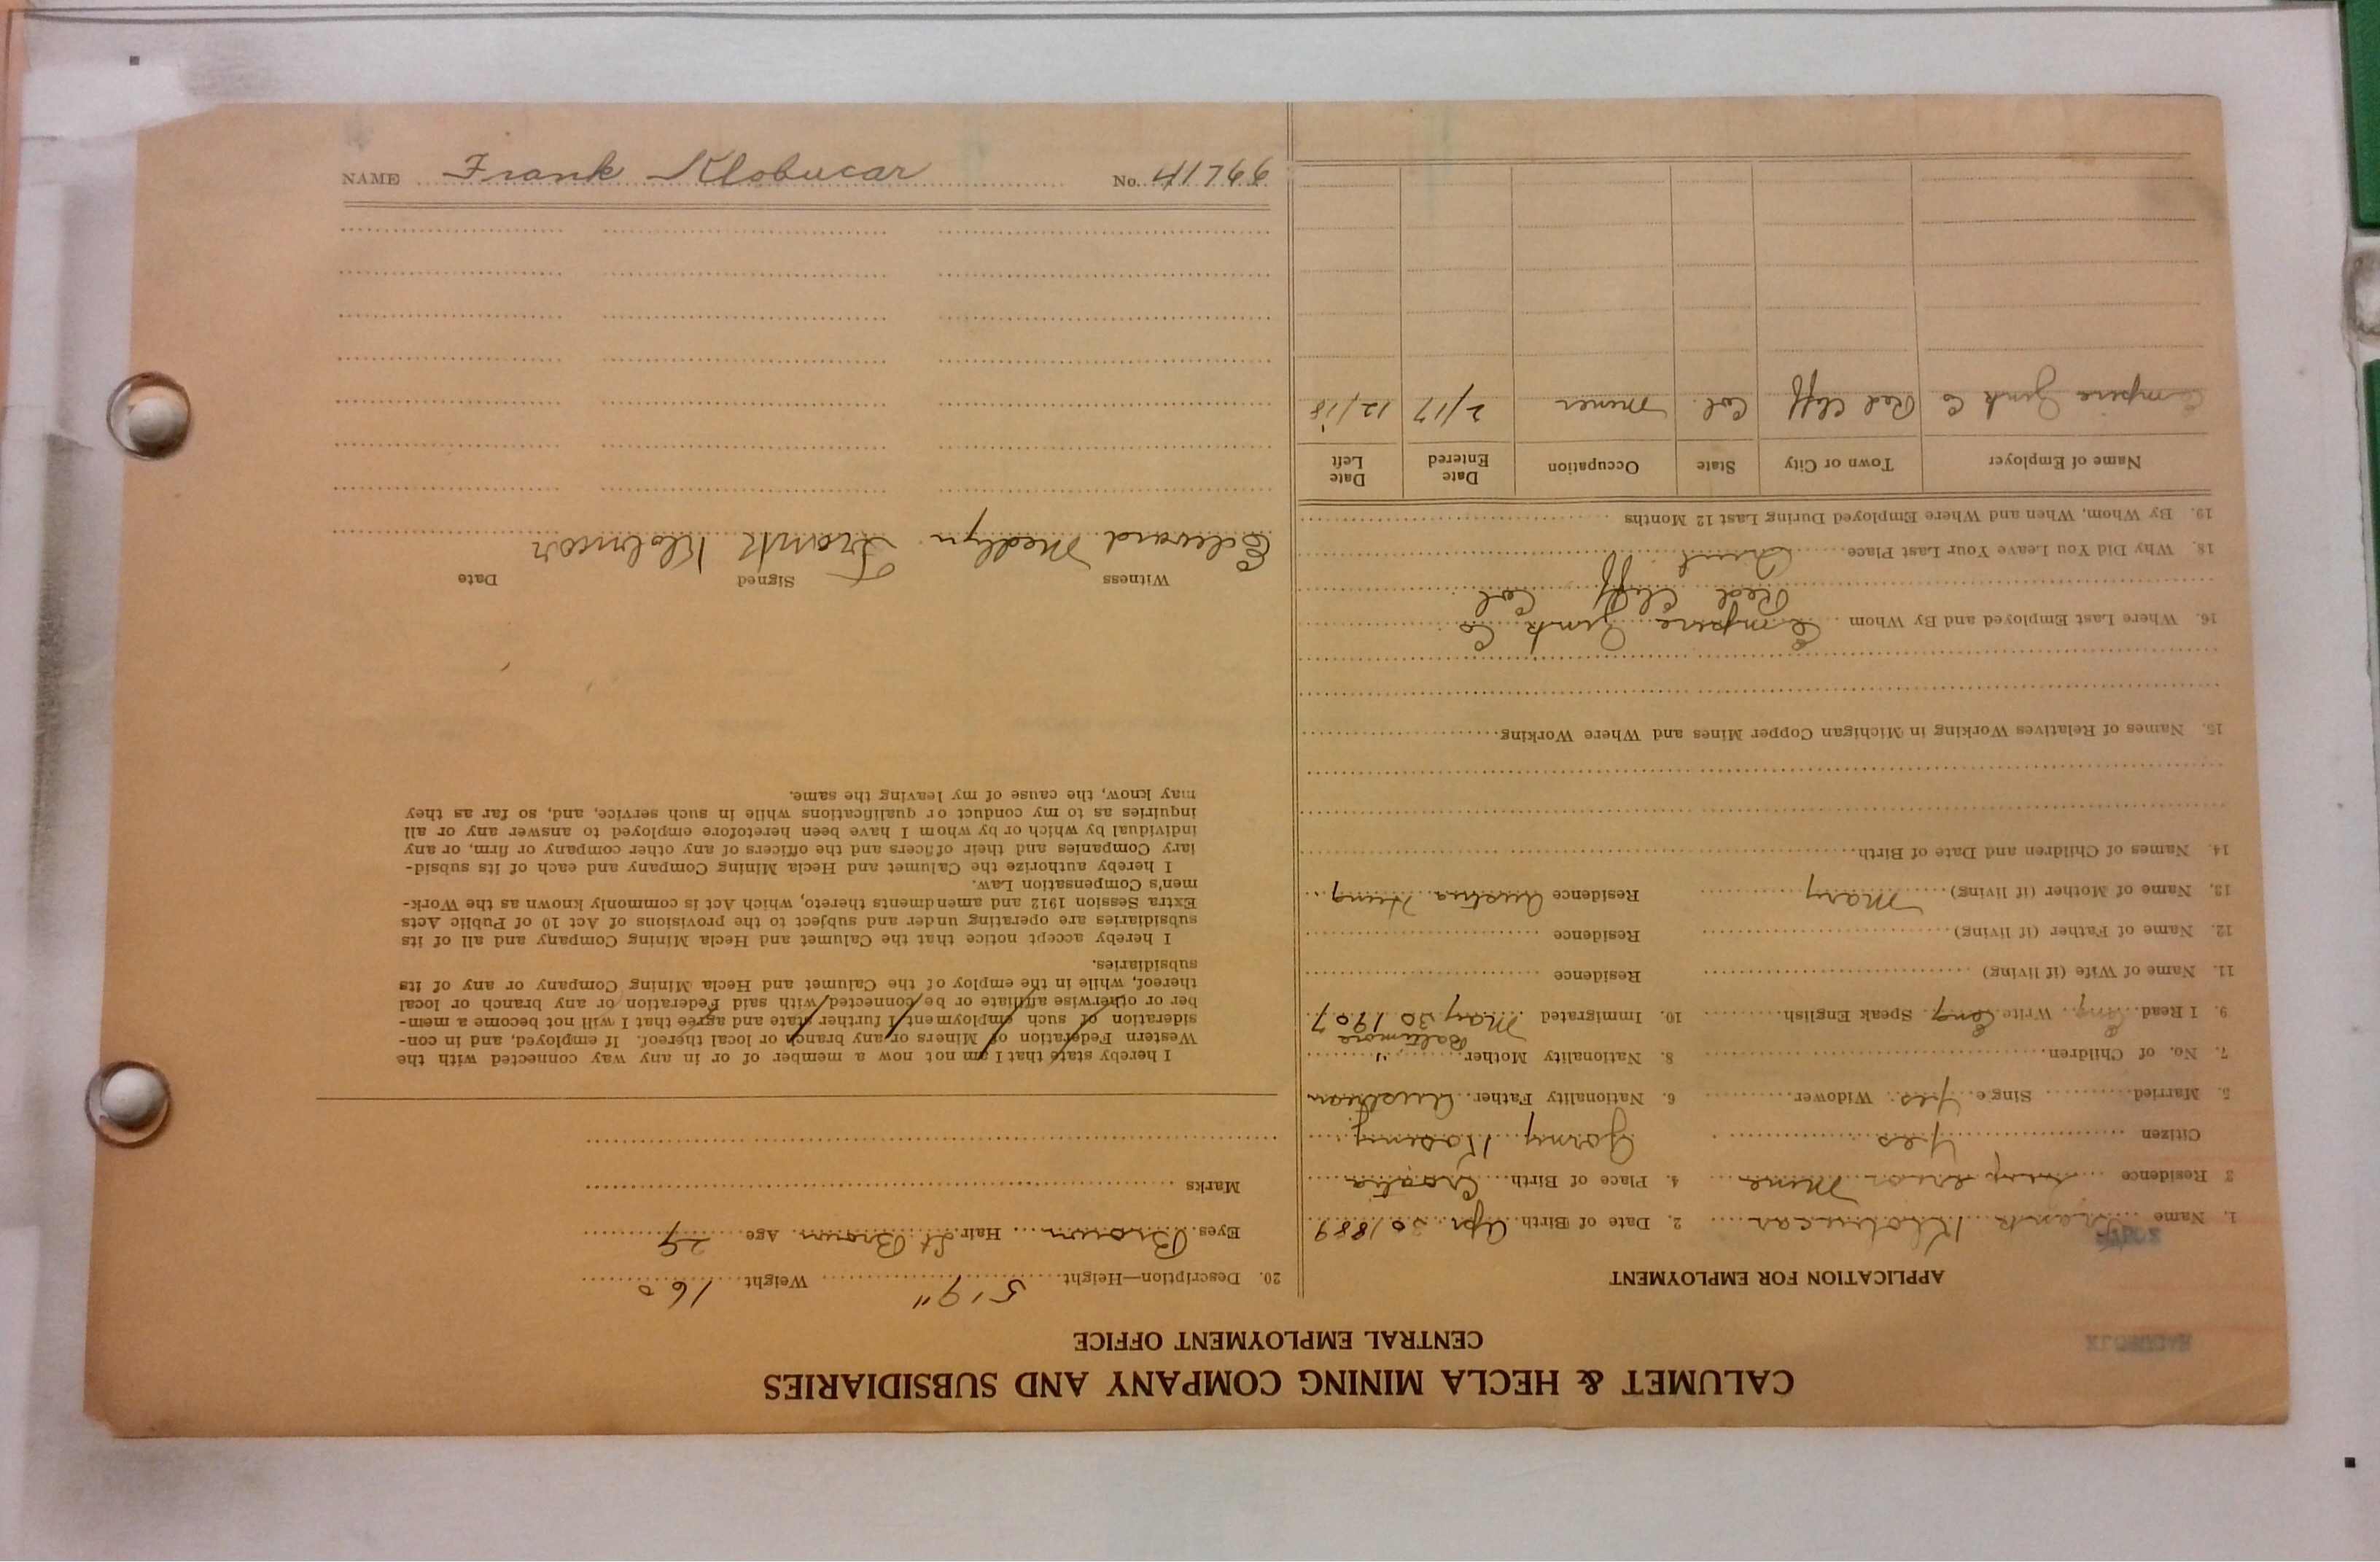 CALUMET & HECLA MINING COMPANY AND SUBSIDIARIES
CENTRAL EMPLOYMENT OFFICE
APPLICATION FOR EMPLOYMENT
1. Name Frank Klobucar 2. Date of Birth Apr 20 1889
3 Residence Mine 4. Place of Birth Croatia
Citizen Yes
5. Married Single Yes Widower 6. Nationality Father Austrian
7. No. of Children 8. Nationality Mother "
Baltimore
9. I Read Eng Write Eng Speak English 10. Immigrated May 30 1907
11. Name of Wife (if living) Residence
12. Name of Father (if living) Residence
13. Name of Mother (if living) Mary Residence Austria Hung
14. Names of Children and Date of Birth
15. Names of Relatives Working in Michigan Copper Mines and Where Working
16. Where Last Employed and By Whom Empire Zink Co
Red Cliff Col
18. Why Did You Leave Your Last Place Quit
19. By Whom, When and Where Employed During Last 12 Months
Name of Employer Town or City State Occupation Date Entered Date Left
Empire Zink Co Red Cliff Col. miner 2/17 12/18
20. Description—Height 5'9" Weight 160
Eyes Brown Hair Lt Brown Age 29
Marks
I hereby state that I am not now a member of or in any way connected with the
Western Federation of Miners or any branch or local thereof. If employed, and in con-
sideration of such employment I further state and agree that I will not become a mem-
ber or otherwise affiliate or be connected with said Federation or any branch or local
thereof, while in the employ of the Calumet and Hecla Mining Company or any of its
subsidiaries.
I hereby accept notice that the Calumet and Hecla Mining Company and all of its
subsidiaries are operating under and subject to the provisions of Act 10 of Public Acts
Extra Session 1912 and amendments thereto, which Act is commonly known as the Work-
men's Compensation Law.
I hereby authorize the Calumet and Hecla Mining Company and each of its subsid-
iary Companies and their officers and the officers of any other company or firm, or any
individual by which or by whom I have been heretofore employed to answer any or all
inquiries as to my conduct or qualifications while in such service, and, so far as they
may know, the cause of my leaving the same.
Witness Signed Date
Edward Medlyn Frank Klobucar
NAME Frank Klobucar No. 41766